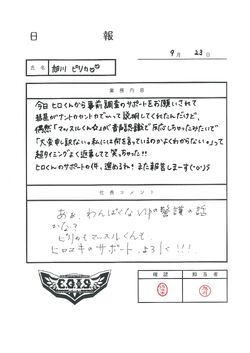 日 報
9月 23日
氏名 細川 ピリカ
業務内容
今日ヒロくんから事前調査のサポートをお願いされて
社長がナントカカントカで〜って説明してくれたんだけど、
偶然「マッスルくん☆」が音声認識で反応しちゃったみたいで
「大変申し訳ない。私には何を言っているのかよくわからない」って
超タイミングよく返事してて笑っちゃった!!
ヒロくんのサポートの件、進めるね!また報告しまーす(^o^)5
社長コメント
あぁ、わんぱくなVIPの警護の話
かな?
ピリカもマッスルくんも
ヒロユキのサポート、よろしく!!!
確認 担当者